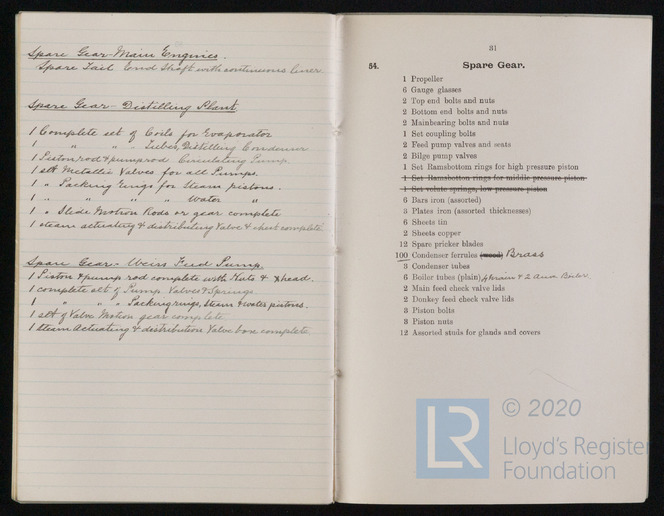 Spare Gear - Main Engines.
Spare Tail End Shaft with continuous liner.
Spare Gear - Distilling Plant
1 Complete set of Coils for Evaporator
1 " " " Tubes, Distilling Condenser
1 Piston rod & pump rod Circulating Pump.
1 set Metallic Valves for all Pumps.
1 " Packing Rings for Steam pistons.
1 " " " " Water "
1 " Slide Motion Rods or gear complete
1 steam actuating & distributing Valve & chest complete
Spare Gear - Weirs Feed Pump.
1 Piston & pump rod complete with Nuts & head.
1 complete set of Pump Valves & Springs.
1 " " " Packing rings, Steam & water pistons.
1 set of Valve Motion gear complete.
1 Steam Actuating & distribution Valve box complete.
31
54. Spare Gear.
1 Propeller
6 Gauge glasses
2 Top end bolts and nuts
2 Bottom end bolts and nuts
2 Mainbearing bolts and nuts
1 Set coupling bolts
2 Feed pump valves and seats
2 Bilge pump valves
1 Set Ramsbottom rings for high pressure piston
1 Set Ramsbotton rings for middle pressure piston
1 Set volute springs, low pressure piston
6 Bars iron (assorted)
3 Plates iron (assorted thicknesses)
6 Sheets tin
2 Sheets copper
12 Spare pricker blades
100 Condenser ferrules (wood) Brass
3 Condenser tubes
6 Boiler tubes (plain) 4 main & 2 Aux Boiler
2 Main feed check valve lids
2 Donkey feed check valve lids
3 Piston bolts
3 Piston nuts
12 Assorted studs for glands and covers
LR © 2020
Lloyd's Register
Foundation